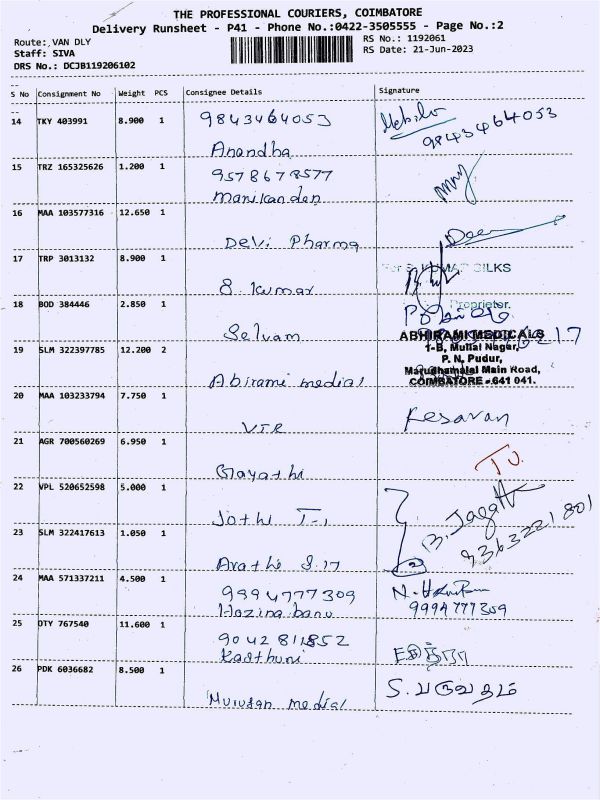 THE PROFESSIONAL COURIERS, COIMBATORE
Delivery Runsheet - P41 - Phone No.:0422-3505555 - Page No.:2
Route: VAN DLY RS No.: 1192061
Staff: SIVA RS Date: 21-Jun-2023
DRS No.: DCJB119206102
S No Consignment No Weight PCS Consignee Details Signature
14 TKY 403991 8.900 1 9843464053
Anandha 9843464053
15 TRZ 165325626 1.200 1 9578678577
Manikandan
16 MAA 103577316 12.650 1
Devi Pharma
17 TRP 3013132 8.900 1 SILKS
S. Kumar
18 BOD 384446 2.850 1 Proprietor.
Selvam
ABHIRAMI MEDICALS
19 SLM 322397785 12.200 2 1-B, Mullai Nagar,
P. N. Pudur,
Marudhamalai Main Road,
Abirami medial COIMBATORE - 641 041.
20 MAA 103233794 7.750 1 Kesavan
VTR
21 AGR 700560269 6.950 1
Gayathi
22 VPL 520652598 5.000 1
Jothi T-1 B. Jagath
23 SLM 322417613 1.050 1 9363221801
Arathi S.17
24 MAA 571337211 4.500 1 9994777309
Hazina banu 9994777309
25 OTY 767540 11.600 1 9042811852
Kasthuri
26 PDK 6036682 8.500 1 S. பருவதம்
Murugan medial